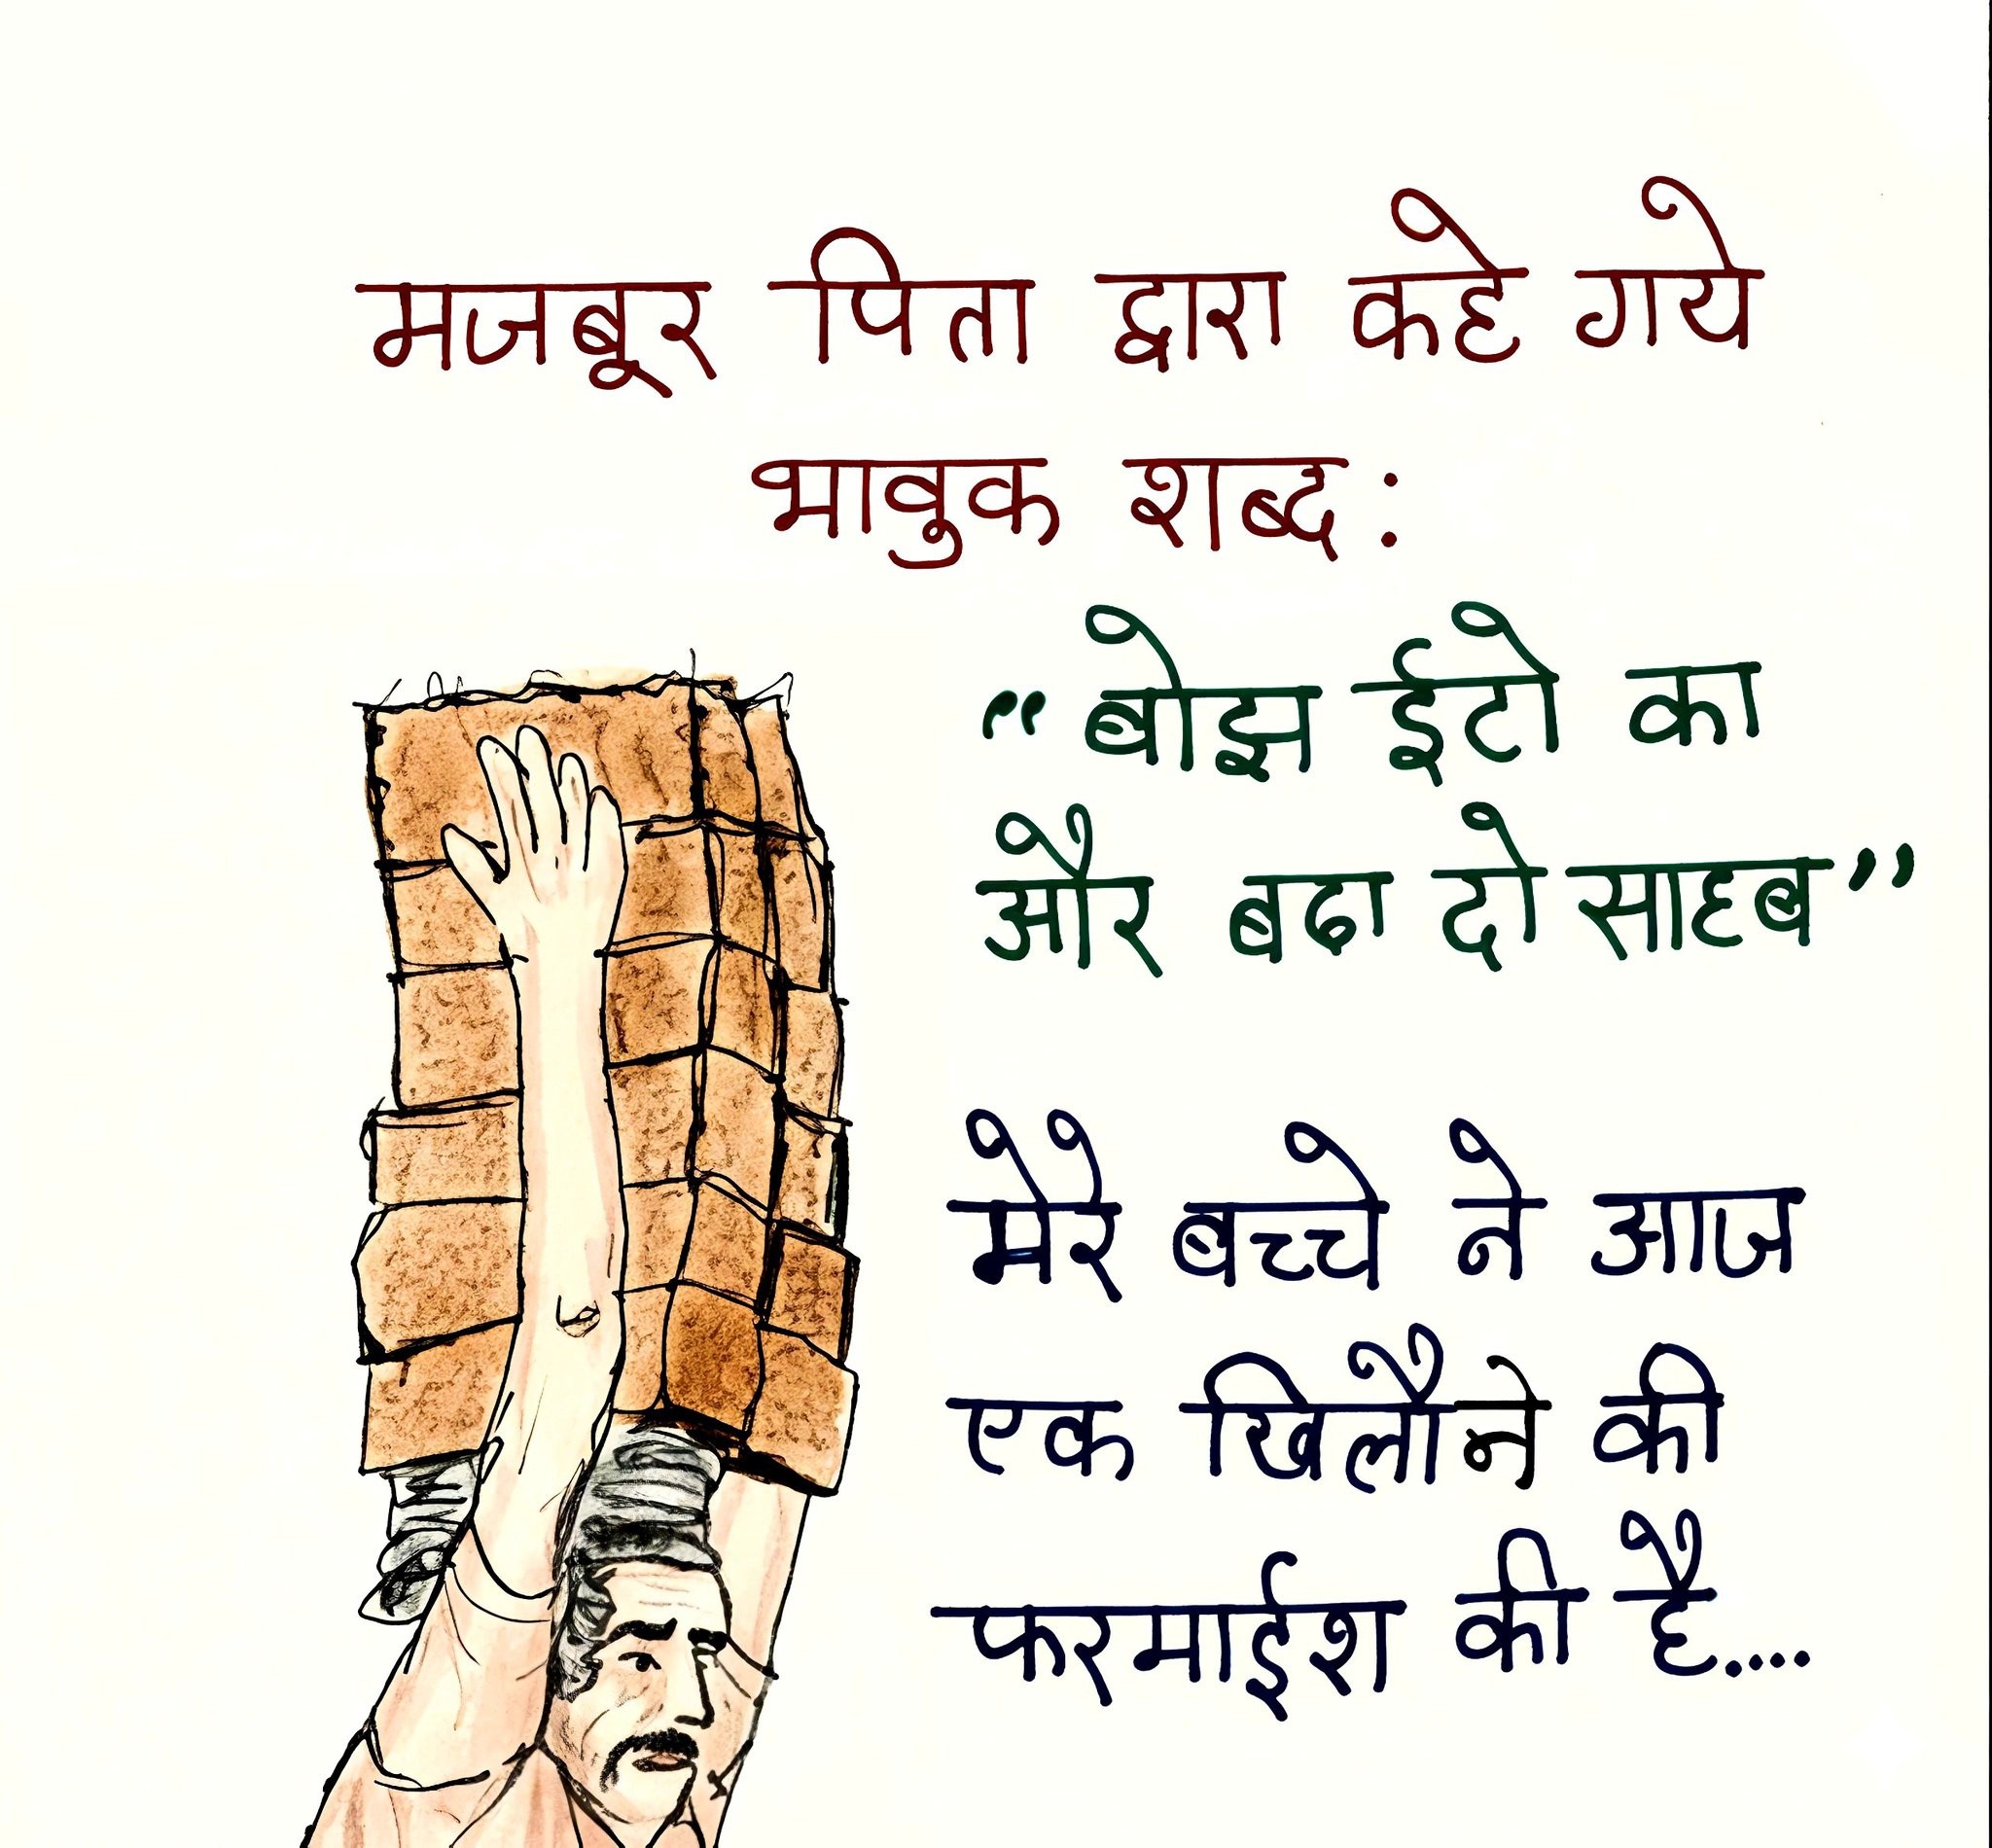 मजबूर पिता द्वारा कहे गये
भावुक शब्द:
“बोझ ईटो का
और बढा दो साहब”
मेरे बच्चे ने आज
एक खिलौने की
फरमाईश की है....